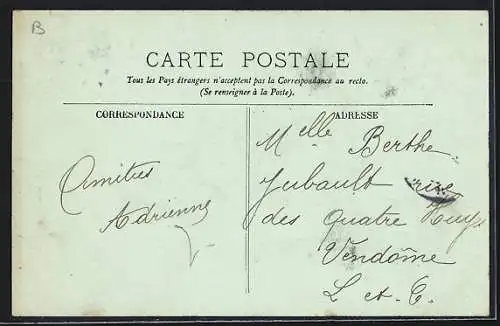 B
CARTE POSTALE
Tous les Pays étrangers n'acceptent pas la Correspondance au recto.
(Se renseigner à la Poste).
CORRESPONDANCE
Amitiés
Adrienne
ADRESSE
Melle Berthe
Jubault rue
des quatre Huyes
Vendôme
L et C.